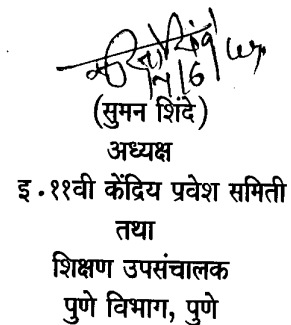 (सुमन शिंदे)
अध्यक्ष
इ.११वी केंद्रिय प्रवेश समिती
तथा
शिक्षण उपसंचालक
पुणे विभाग, पुणे